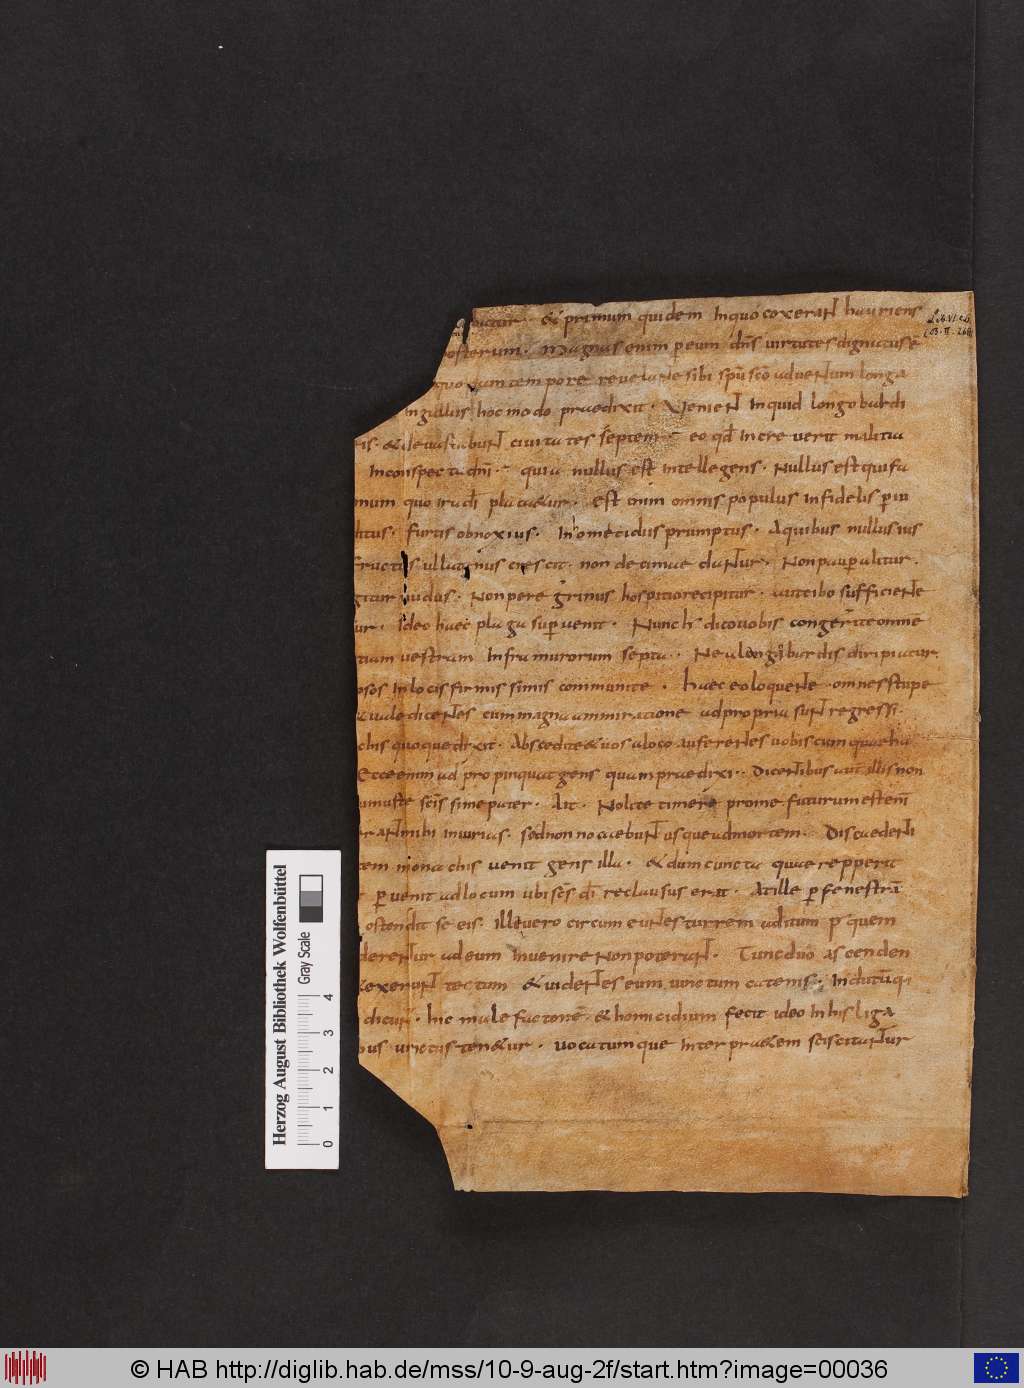 &primum quidem Inquo coxeraN hauriens
osterum. Magnas enim peum dns uirtutes dignatus e
quodam tempore reuelaNe sibi spu sco adueNum longa
hoc modo praedixit. VenieN Inquid longobardi
& deuastabuN ciuitates septem. eo qd Increuerit malitia
Inconspectu dni. quia nullus est Intellegens. Nullus est qui fa
num quo ira di placa&ur. est enim omnis populus Infidelis piu
furtis obnoxius. Inomecidiis prumptus. Aquibus nullus ius
fructus ullatenus crescit. non decimae daNur. Non paup alitur.
gitur nudus. Non peregrinus hospitio recipitur. aut cibo sufficieNe
ur. Ideo haec plaga sup uenit. Nunc h dico uobis congerite omne
tiam uestram Infra murorum septa. Ne alongobardis diripiatur.
osos Inlocis firmissimis communite. haec eo loqueNe omnes stupe
& uale diceNes cum magna ammiratione ad propria suN regressi.
chis quoque dixit. Abscedite & uos aloco aufereNes uobiscum quae ha
Ecce enim ad propinquat gens quam praedixi. DiceNibus aut illis non
scis sime pater. Ait. Nolite timere pro me futurum est eni
raN mihi Iniurias. sed non nocaebuN usque ad mortem. DiscaedeNi
tem monachis uenit gens illa. & dum cuncta quae repperit
peruenit ad locum ubi scs di reclausus erat. At ille p fenestra
ostendit se eis. Illi uero circumeuNes turrem aditum p quem
dereNur ad eum Inuenire Non poteraN. Tunc duo ascenden
&exeruN tectum & uideNes eum uinctum catenis. Indutuq
dicuN. hic malefactor e & homicidium fecit ideo In his liga
uinctus ten&ur. uocatumque Inter pra&em sciscitaNur
Herzog August Bibliothek Wolfenbüttel
Gray Scale
0 1 2 3 4
© HAB http://diglib.hab.de/mss/10-9-aug-2f/start.htm?image=00036